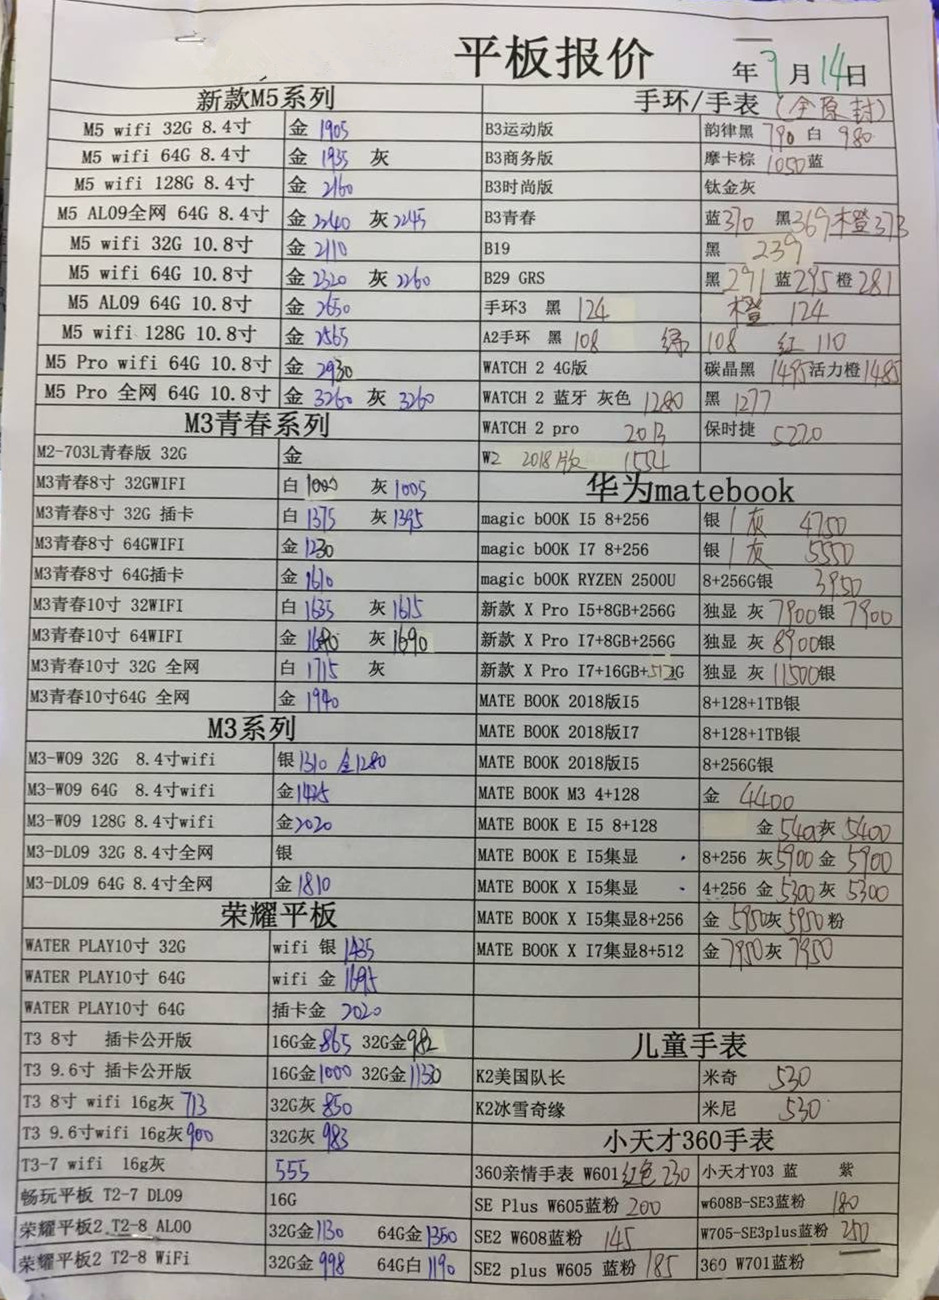 平板报价
年9月14日
新款M5系列
M5 wifi 32G 8.4寸 金 1905
M5 wifi 64G 8.4寸 金 1935 灰
M5 wifi 128G 8.4寸 金 2160
M5 AL09全网 64G 8.4寸 金 2240 灰 2245
M5 wifi 32G 10.8寸 金 2110
M5 wifi 64G 10.8寸 金 2320 灰 2260
M5 AL09 64G 10.8寸 金 2650
M5 wifi 128G 10.8寸 金 2565
M5 Pro wifi 64G 10.8寸 金 2930
M5 Pro 全网 64G 10.8寸 金 3260 灰 3260
M3青春系列
M2-703L青春版 32G 金
M3青春8寸 32GWIFI 白 1000 灰 1005
M3青春8寸 32G 插卡 白 1375 灰 1395
M3青春8寸 64GWIFI 金 1230
M3青春8寸 64G插卡 金 1610
M3青春10寸 32WIFI 白 1635 灰 1615
M3青春10寸 64WIFI 金 1680 灰 1690
M3青春10寸 32G 全网 白 1715 灰
M3青春10寸64G 全网 金 1940
M3系列
M3-W09 32G 8.4寸wifi 银 1310 金1280
M3-W09 64G 8.4寸wifi 金 1425
M3-W09 128G 8.4寸wifi 金 2020
M3-DL09 32G 8.4寸全网 银
M3-DL09 64G 8.4寸全网 金 1810
荣耀平板
WATER PLAY10寸 32G wifi 银 1435
WATER PLAY10寸 64G wifi 金 1695
WATER PLAY10寸 64G 插卡金 2020
T3 8寸 插卡公开版 16G金 865 32G金 982
T3 9.6寸 插卡公开版 16G金 1000 32G金 1130
T3 8寸 wifi 16g灰 713 32G灰 850
T3 9.6寸wifi 16g灰 900 32G灰 983
T3-7 wifi 16g灰 555
畅玩平板 T2-7 DL09 16G
荣耀平板2 T2-8 AL00 32G金 1130 64G金 1350
荣耀平板2 T2-8 WiFi 32G金 998 64G白 1190
手环/手表 (全原封)
B3运动版 韵律黑 790 白 980
B3商务版 摩卡棕 1050 蓝
B3时尚版 钛金灰
B3青春 蓝 370 黑 369 橙 373
B19 黑 239
B29 GRS 黑 291 蓝 295 橙 281
手环3 黑 124 橙 124
A2手环 黑 108 绿 108 红 110
WATCH 2 4G版 碳晶黑 1495 活力橙 1485
WATCH 2 蓝牙 灰色 1280 黑 1277
WATCH 2 pro 2013 保时捷 5220
W2 2018版 1554
华为matebook
magic bOOK I5 8+256 银/灰 4750
magic bOOK I7 8+256 银/灰 5550
magic bOOK RYZEN 2500U 8+256G银 3950
新款 X Pro I5+8GB+256G 独显 灰 7900 银 7900
新款 X Pro I7+8GB+256G 独显 灰 8900 银
新款 X Pro I7+16GB+512G 独显 灰 11500 银
MATE BOOK 2018版I5 8+128+1TB银
MATE BOOK 2018版I7 8+128+1TB银
MATE BOOK 2018版I5 8+256G银
MATE BOOK M3 4+128 金 4400
MATE BOOK E I5 8+128 金 5400 灰 5400
MATE BOOK E I5集显 8+256 灰 5900 金 5900
MATE BOOK X I5集显 4+256 金 5300 灰 5300
MATE BOOK X I5集显8+256 金 5950 灰 5950 粉
MATE BOOK X I7集显8+512 金 7950 灰 7950
儿童手表
K2美国队长 米奇 530
K2冰雪奇缘 米尼 530
小天才360手表
360亲情手表 W601 红色 230 小天才Y03 蓝 紫
SE Plus W605蓝粉 200 w608B-SE3蓝粉 180
SE2 W608蓝粉 145 W705-SE3plus蓝粉 250
SE2 plus W605 蓝粉 185 360 W701蓝粉